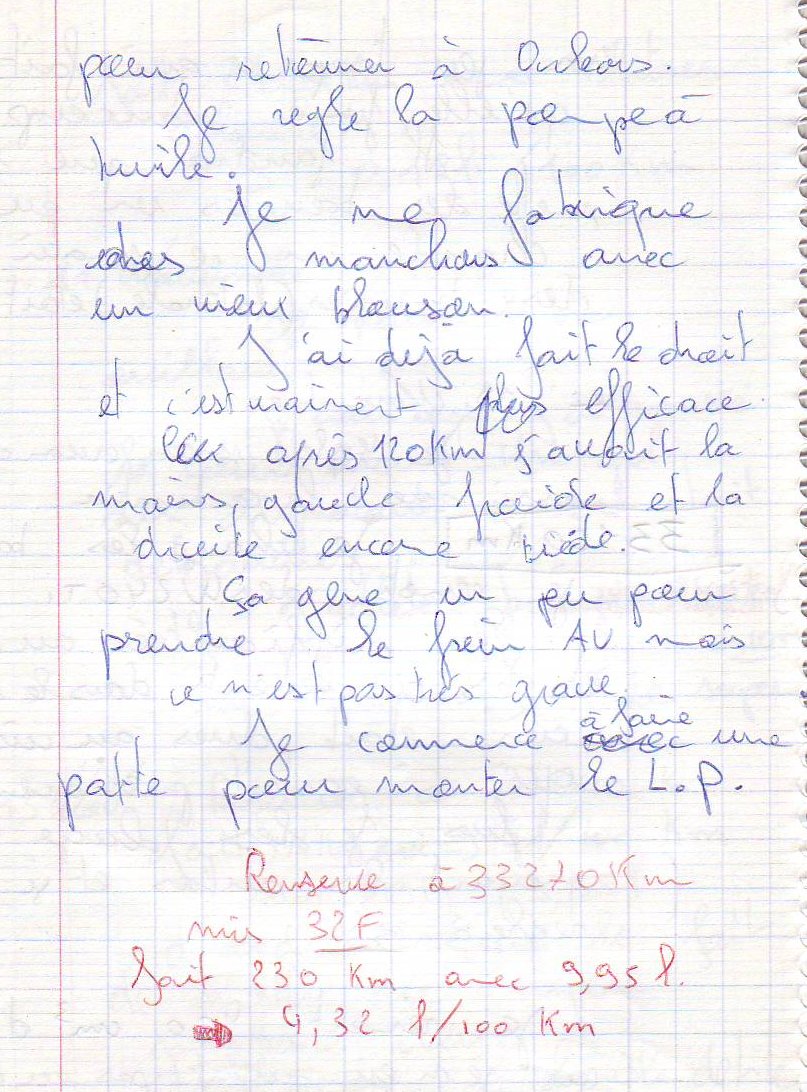 pour retourner à Orléans.
Je regle la pompe à
huile.
Je me fabrique
des manchons avec
un vieux blouson.
J'ai dejà fait le droit
et c'est vraiment plus efficace.
après 120 Km j'avait la
mains gauche froide et la
droite encore tiède.
Ça gène un peu pour
prendre le frein AV mais
ce n'est pas très grave.
Je commence à faire une
patte pour monter le L.P.
à 33270 Km
mis 32F
fait 230 Km avec 9,95 l.
4,32 l/100 Km